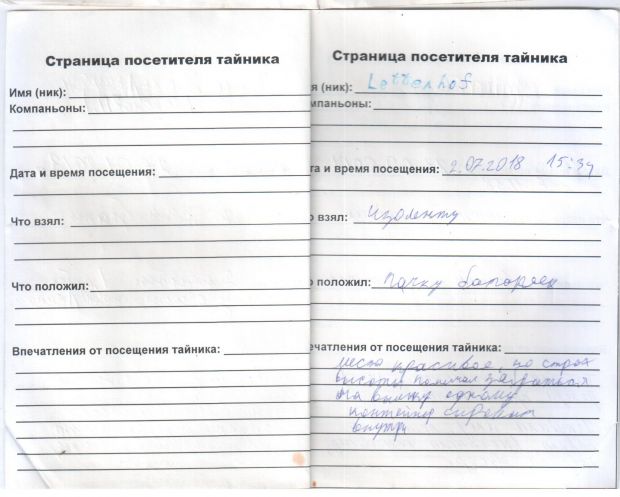 Страница посетителя тайника
Имя (ник):
Компаньоны:
Дата и время посещения:
Что взял:
Что положил:
Впечатления от посещения тайника:
Страница посетителя тайника
я (ник): Lettenhof
мпаньоны:
та и время посещения: 2.07.2018 15:34
о взял: изоленту
о положил: пачку батареек
ечатления от посещения тайника:
место красивое, но страх
высоты помешал
на вышку одному
контейнер
внутри